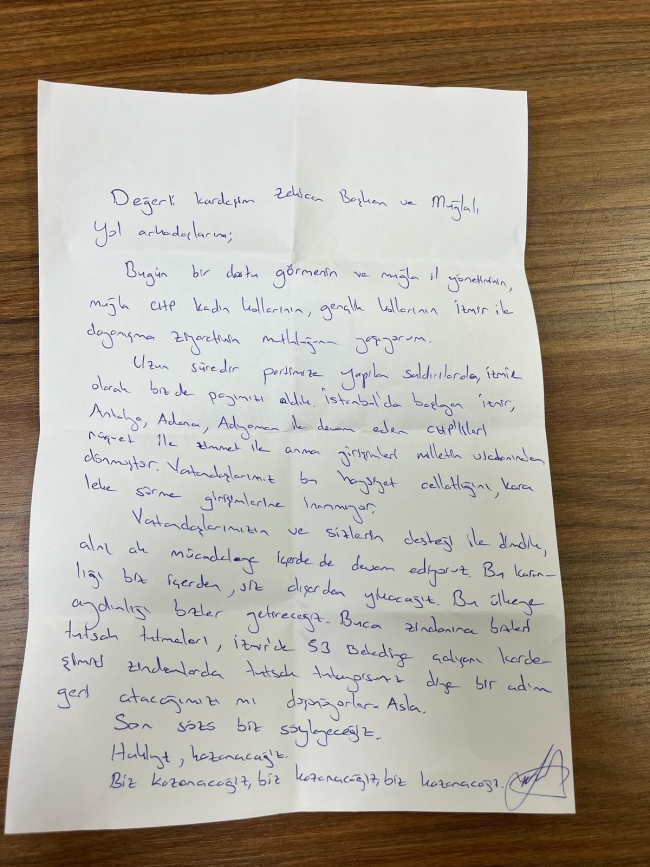 Değerli kardeşim Zelican Başkan ve Muğlalı
Yol arkadaşlarıma;
Bugün bir dostu görmenin ve muğla il yönetiminin,
muğla CHP kadın kollarının, gençlik kollarının İzmir ile
dayanışma ziyaretinin mutluluğunu yaşıyorum.
Uzun süredir partimize yapılan saldırılarda, izmir
olarak biz de payımızı aldık. İstanbul'da başlayan izmir,
Antalya, Adana, Adıyaman ile devam eden CHP'lileri
rüşvet ile zimmet ile anma girişimleri milletin vicdanından
dönmüştür. Vatandaşlarımız bu haysiyet cellatlığını, kara
leke sürme girişimlerine inanmıyor.
Vatandaşlarımızın ve sizlerin desteği ile dimdik,
alnı ak mücadeleye içerde de devam ediyoruz. Bu karan-
lığı biz içerden, siz dışardan yıkacağız. Bu ülkeye
aydınlığı bizler getireceğiz. Buca zindanına bizleri
tutsak tutmaları, izmir'de 53 Belediye çalışanı karde
şimizi zindanlarda tutsak tutuyorsunuz diye bir adım
geri atacağımızı mı düşünüyorlar. Asla.
Son sözü biz söyleyeceğiz.
Haklıyız, kazanacağız.
Biz kazanacağız, biz kazanacağız, biz kazanacağız.